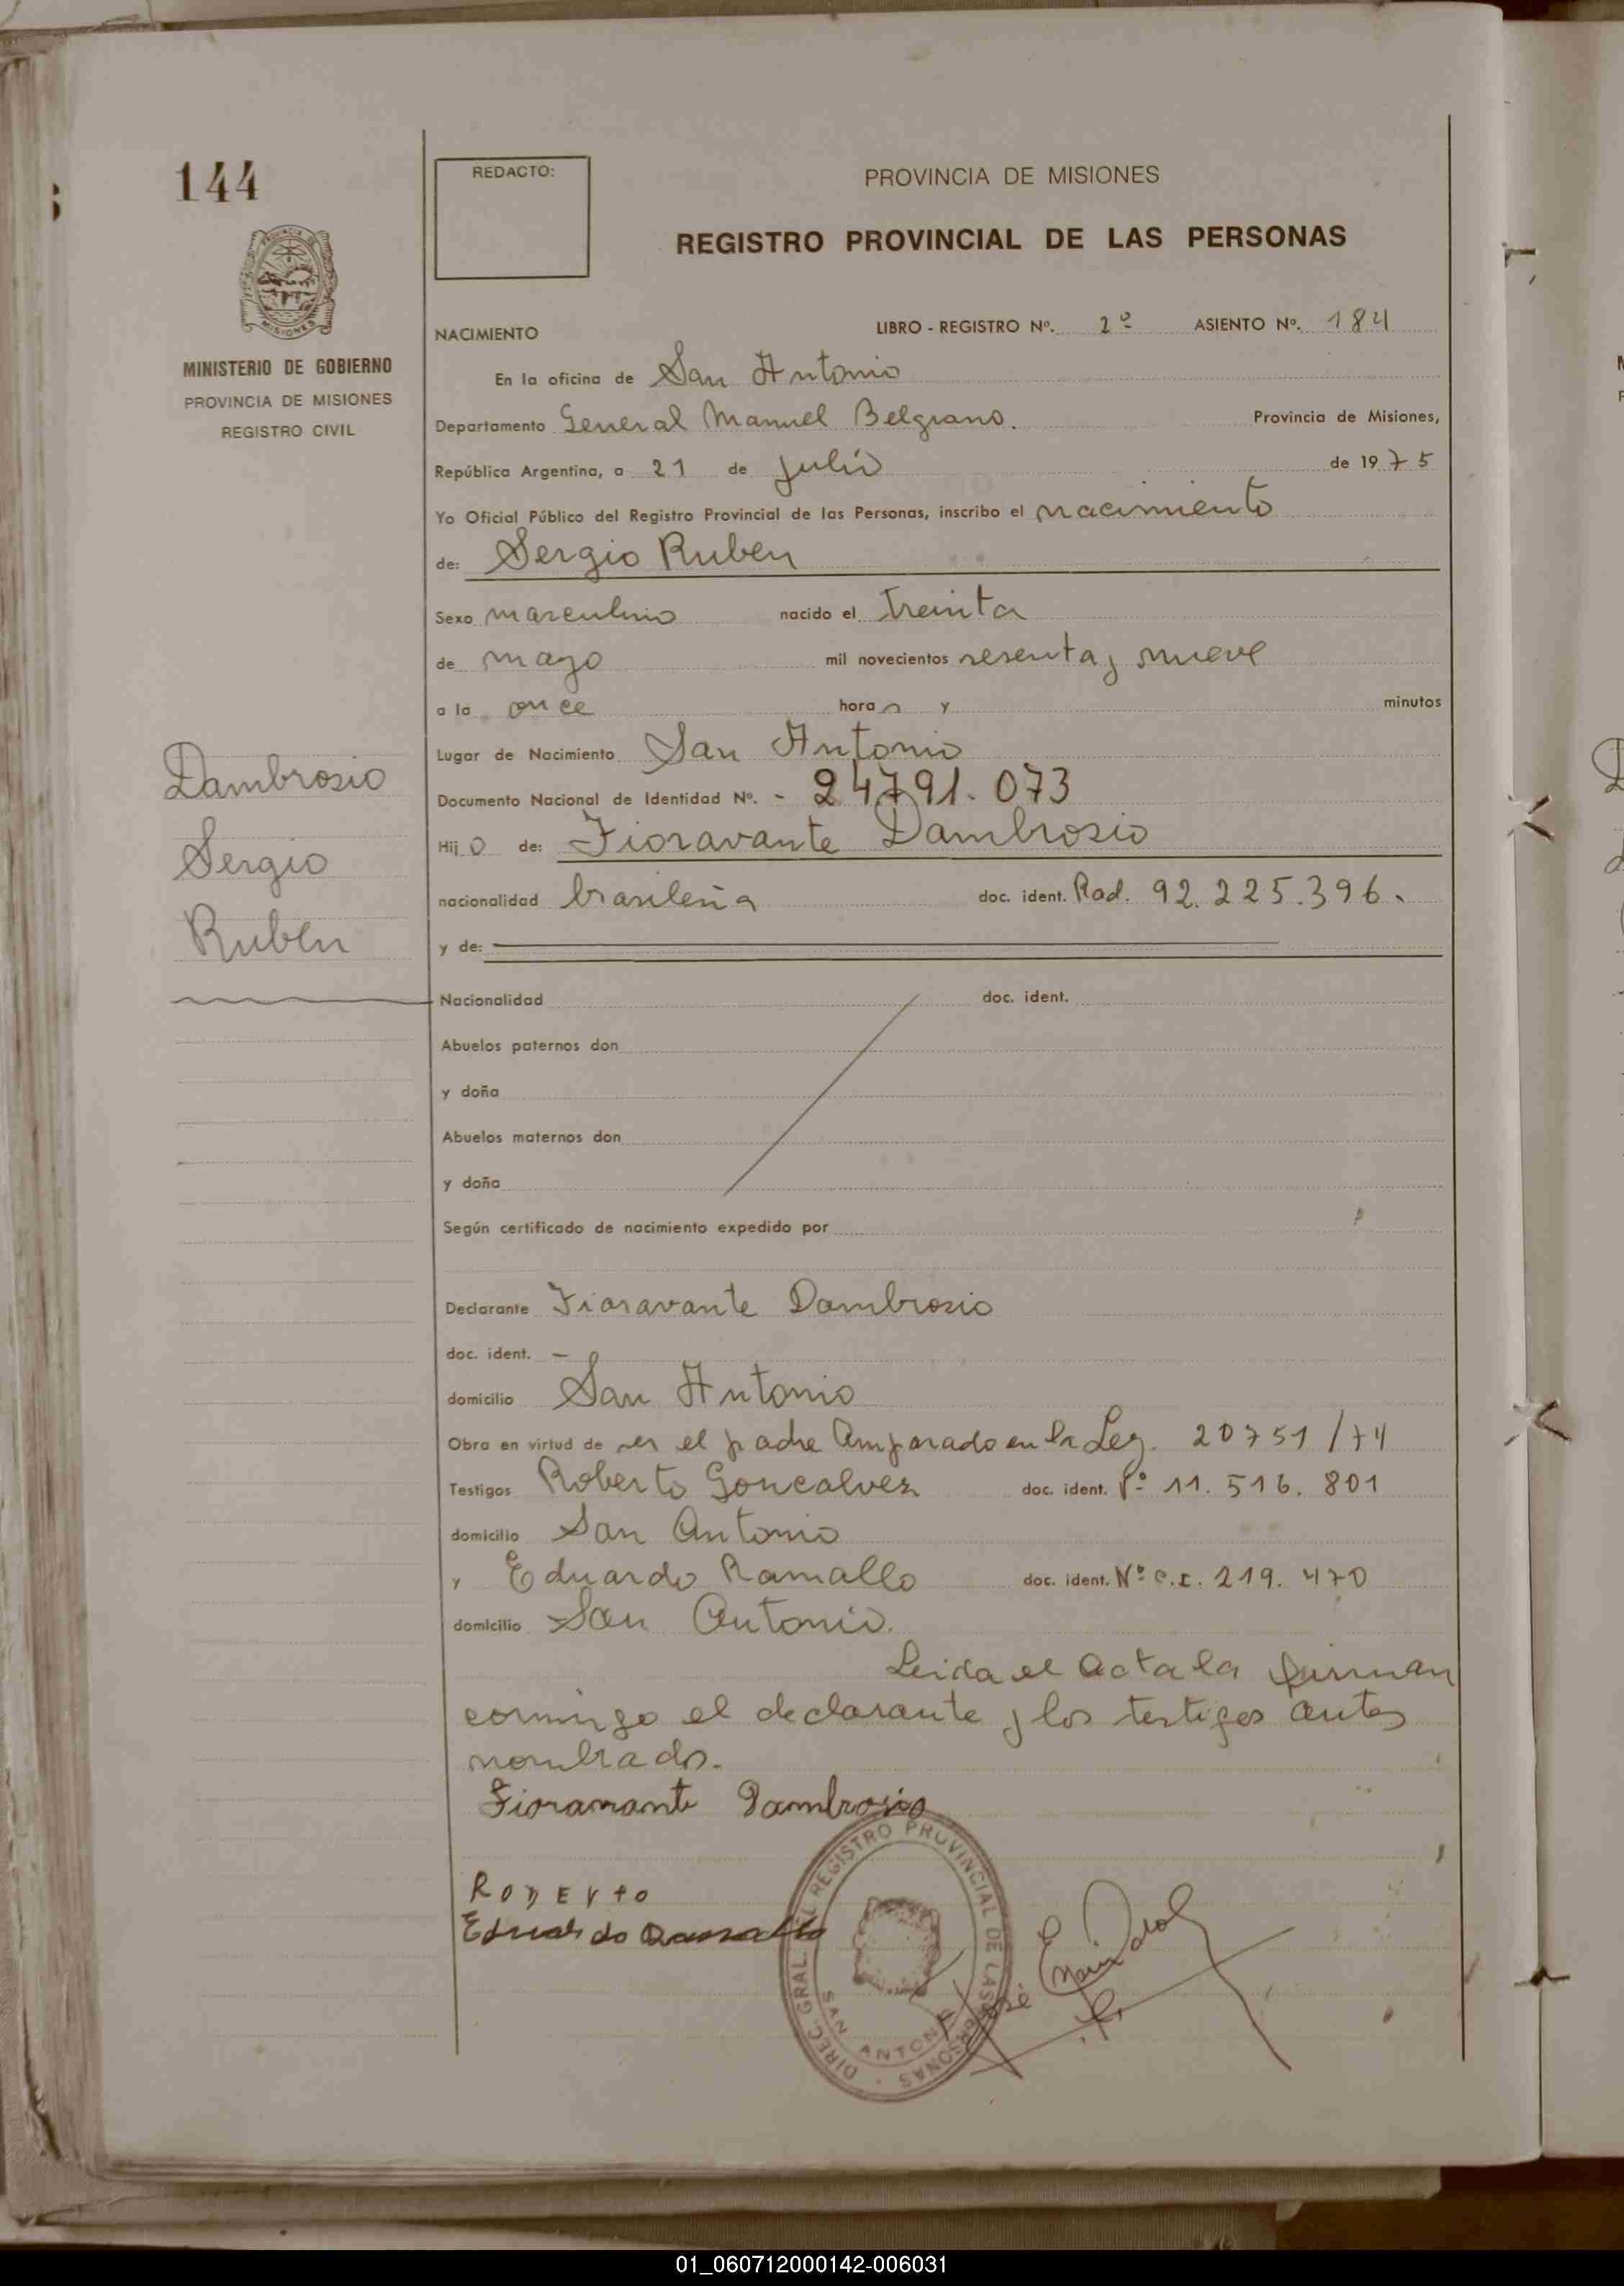 144
REDACTO:
PROVINCIA DE MISIONES
REGISTRO PROVINCIAL DE LAS PERSONAS
MINISTERIO DE GOBIERNO
PROVINCIA DE MISIONES
REGISTRO CIVIL
NACIMIENTO
LIBRO - REGISTRO Nº. 2º ASIENTO Nº. 184
En la oficina de San Antonio
Departamento General Manuel Belgrano. Provincia de Misiones,
República Argentina, a 21 de julio de 1975
Yo Oficial Público del Registro Provincial de las Personas, inscribo el nacimiento
de: Sergio Ruben
Sexo masculino nacido el treinta
de mayo mil novecientos sesenta y nueve
a la once horas y minutos
Lugar de Nacimiento San Antonio
Documento Nacional de Identidad Nº. - 24791.073
Hijo de: Fioravante Dambrosio
nacionalidad brasileña doc. ident. Rad. 92.225.396.
y de:
Dambrosio
Sergio
Ruben
Nacionalidad doc. ident.
Abuelos paternos don
y doña
Abuelos maternos don
y doña
Según certificado de nacimiento expedido por
Declarante Fioravante Dambrosio
doc. ident. —
domicilio San Antonio
Obra en virtud de ser el padre Amparado en la Ley. 20751/74
Testigos Roberto Goncalvez doc. ident. Nº 11.516.801
domicilio San Antonio
y Eduardo Ramallo doc. ident. Nº C.I. 219.470
domicilio San Antonio.
Leida el acta la firman
conmigo el declarante y los testigos antes
nombrados.
Fioravante Dambrosio
Roberto
Eduardo Ramallo
DIREC. GRAL. DEL REGISTRO PROVINCIAL DE LAS PERSONAS
SAN ANTONIO
José
01_060712000142-006031